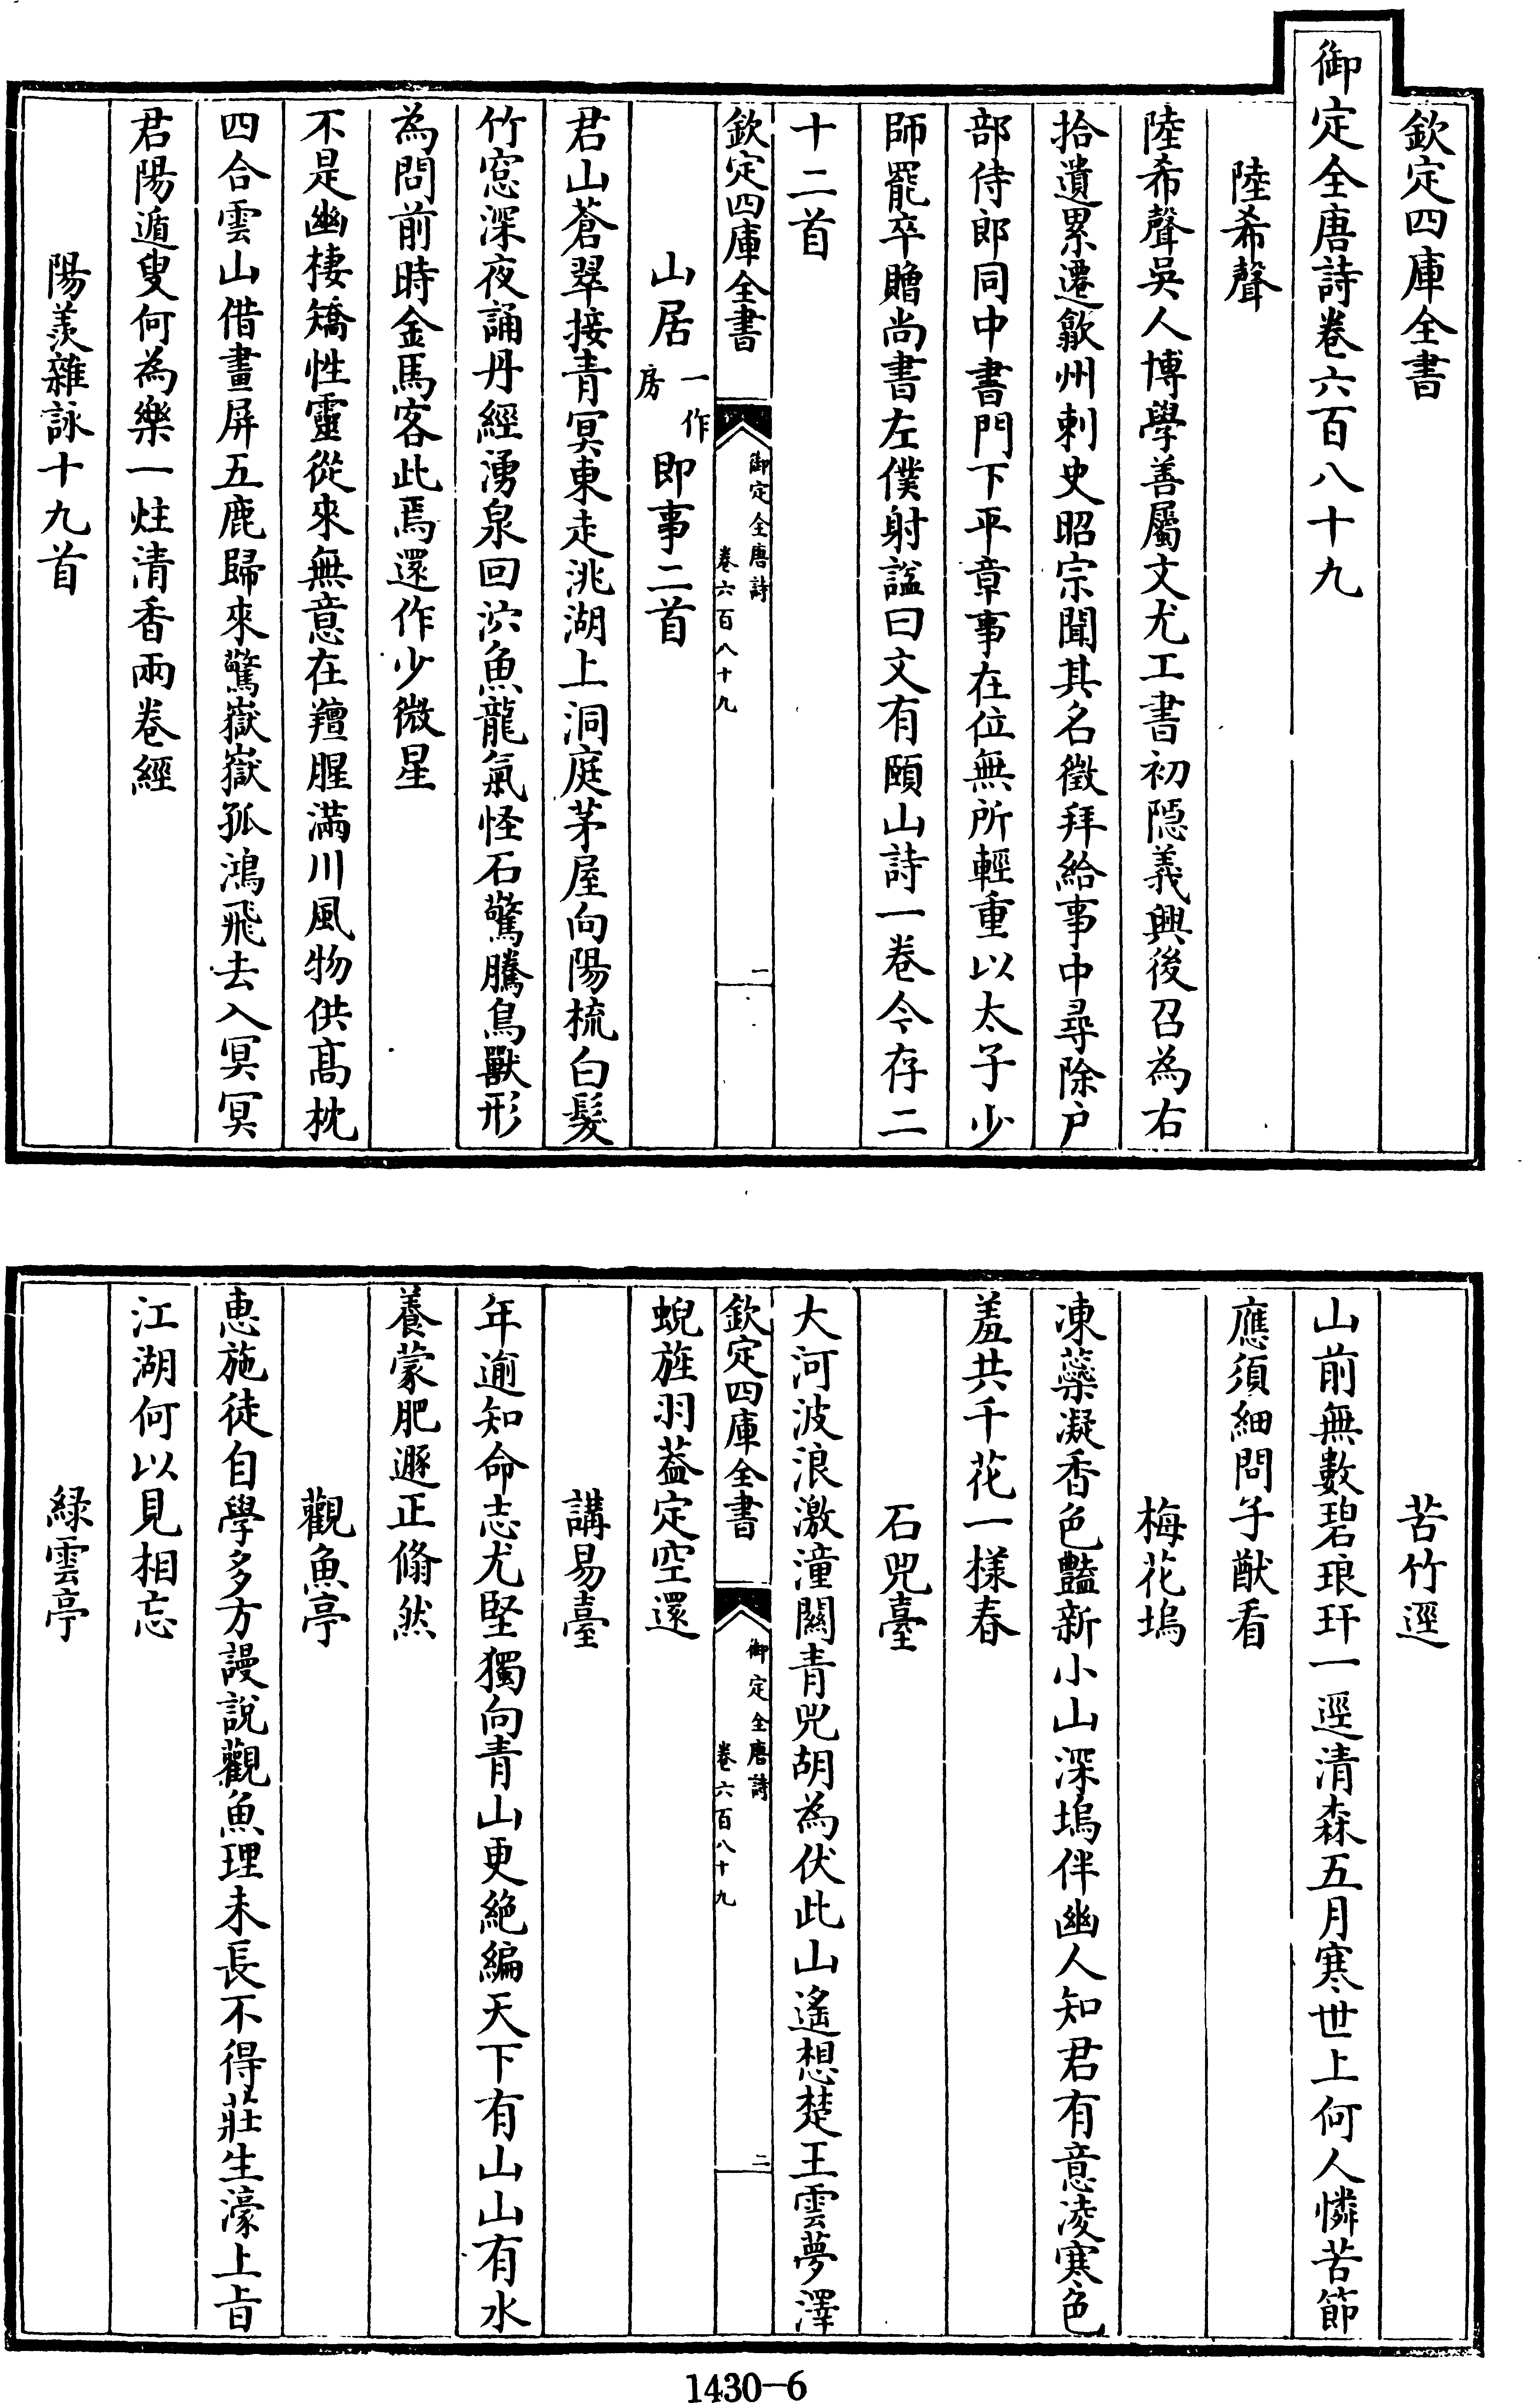 欽定四庫全書
御定全唐詩卷六百八十九
陸希聲
陸希聲吳人博學善屬文尤工書初隱義興後召為右
拾遺累遷歙州刺史昭宗聞其名徵拜給事中尋除户
部侍郎同中書門下平章事在位無所輕重以太子少
師罷卒贈尚書左僕射諡曰文有頤山詩一卷今存二
十二首
欽定四庫全書
御定全唐詩
卷六百八十九
一
山居一作房即事二首
君山蒼翠接青冥東走洮湖上洞庭茅屋向陽梳白髮
竹窓深夜誦丹經湧泉回泬魚龍氣怪石驚騰鳥獸形
為問前時金馬客此焉還作少微星
不是幽棲矯性靈從來無意在羶腥滿川風物供髙枕
四合雲山借畫屏五鹿歸來驚嶽嶽孤鴻飛去入冥冥
君陽遁叟何為樂一炷清香兩卷經
陽羨雜詠十九首
苦竹逕
山前無數碧琅玕一逕清森五月寒世上何人憐苦節
應須細問子猷看
梅花塢
凍蘂凝香色豔新小山深塢伴幽人知君有意凌寒色
羞共千花一様春
石兕臺
大河波浪激潼關青兕胡為伏此山遙想楚王雲夢澤
蜺旌羽葢定空還
欽定四庫全書
御定全唐詩
卷六百八十九
二
講易臺
年逾知命志尤堅獨向青山更絶編天下有山山有水
養蒙肥遯正翛然
觀魚亭
惠施徒自學多方謾說觀魚理未長不得莊生濠上㫖
江湖何以見相忘
緑雲亭
1430-6